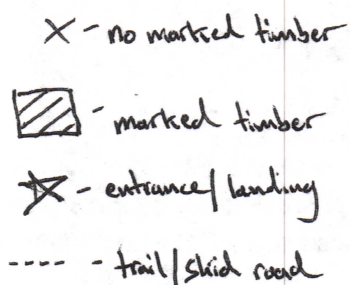 - no marked timber
- marked timber
- entrance/landing
- trail/skid road